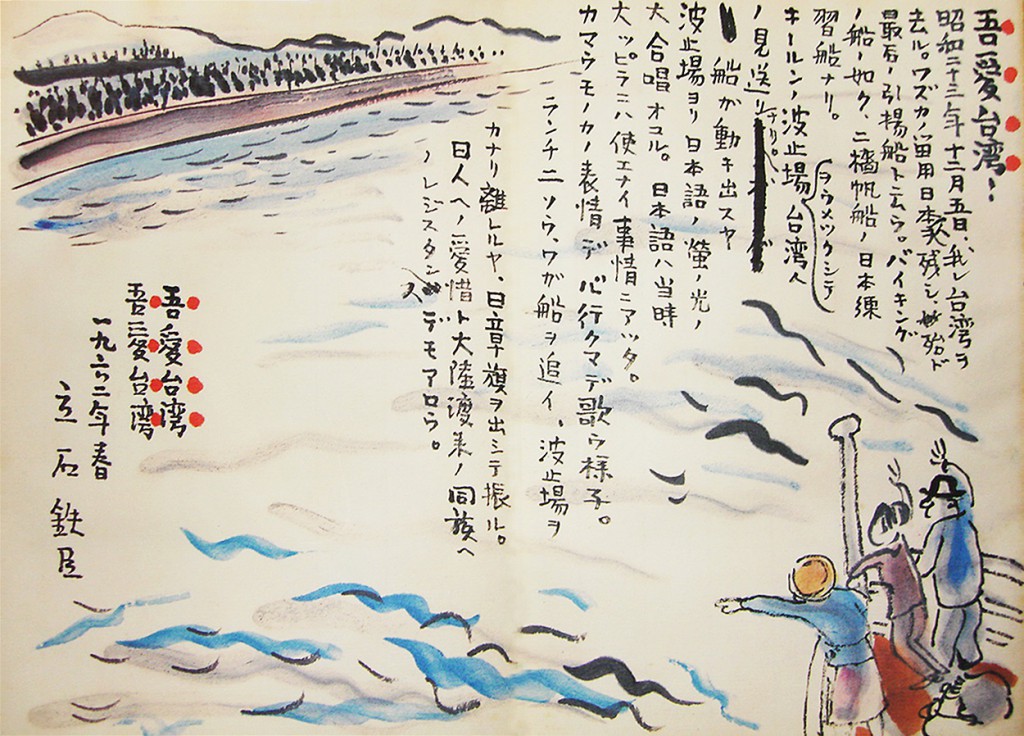 吾愛台湾！
昭和二十三年十二月五日、我レ台湾ヲ
去ル。ワズカノ留用日本家族ヲ残シ、殆ド
最后ノ引揚船ト云ウ。バイキング
ノ船ノ如ク、二檣帆船ノ日本練
習船ナリ。
キールンノ波止場ヲウメツクシテ台湾人
ノ見送リナリ。
船が動キ出スヤ
波止場ヨリ日本語ノ螢ノ光ノ
大合唱オコル。日本語ハ当時
大ッピラニハ使エナイ事情ニアッタ。
カマウモノカノ表情デ心行クマデ歌ウ様子。
ランチ二ソウ、ワガ船ヲ追イ、波止場ヲ
カナリ離レルヤ、日章旗ヲ出シテ振ル。
日人ヘノ愛惜ト大陸渡来ノ同族ヘ
ノレジスタンスデモアロウ。
吾愛台湾
吾愛台湾
一九六二年春
立石鉄臣